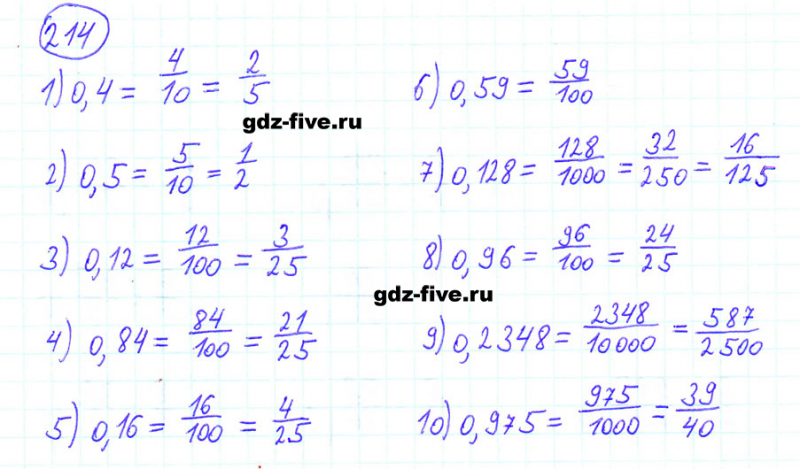 214
1) 0,4 = 4/10 = 2/5
gdz-five.ru
2) 0,5 = 5/10 = 1/2
3) 0,12 = 12/100 = 3/25
4) 0,84 = 84/100 = 21/25
5) 0,16 = 16/100 = 4/25
6) 0,59 = 59/100
7) 0,128 = 128/1000 = 32/250 = 16/125
8) 0,96 = 96/100 = 24/25
gdz-five.ru
9) 0,2348 = 2348/10000 = 587/2500
10) 0,975 = 975/1000 = 39/40